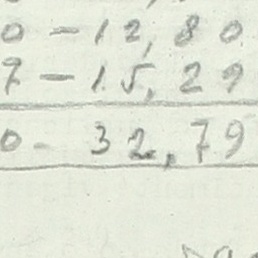 0 - 12,80
7 - 15,29
0 - 32,79